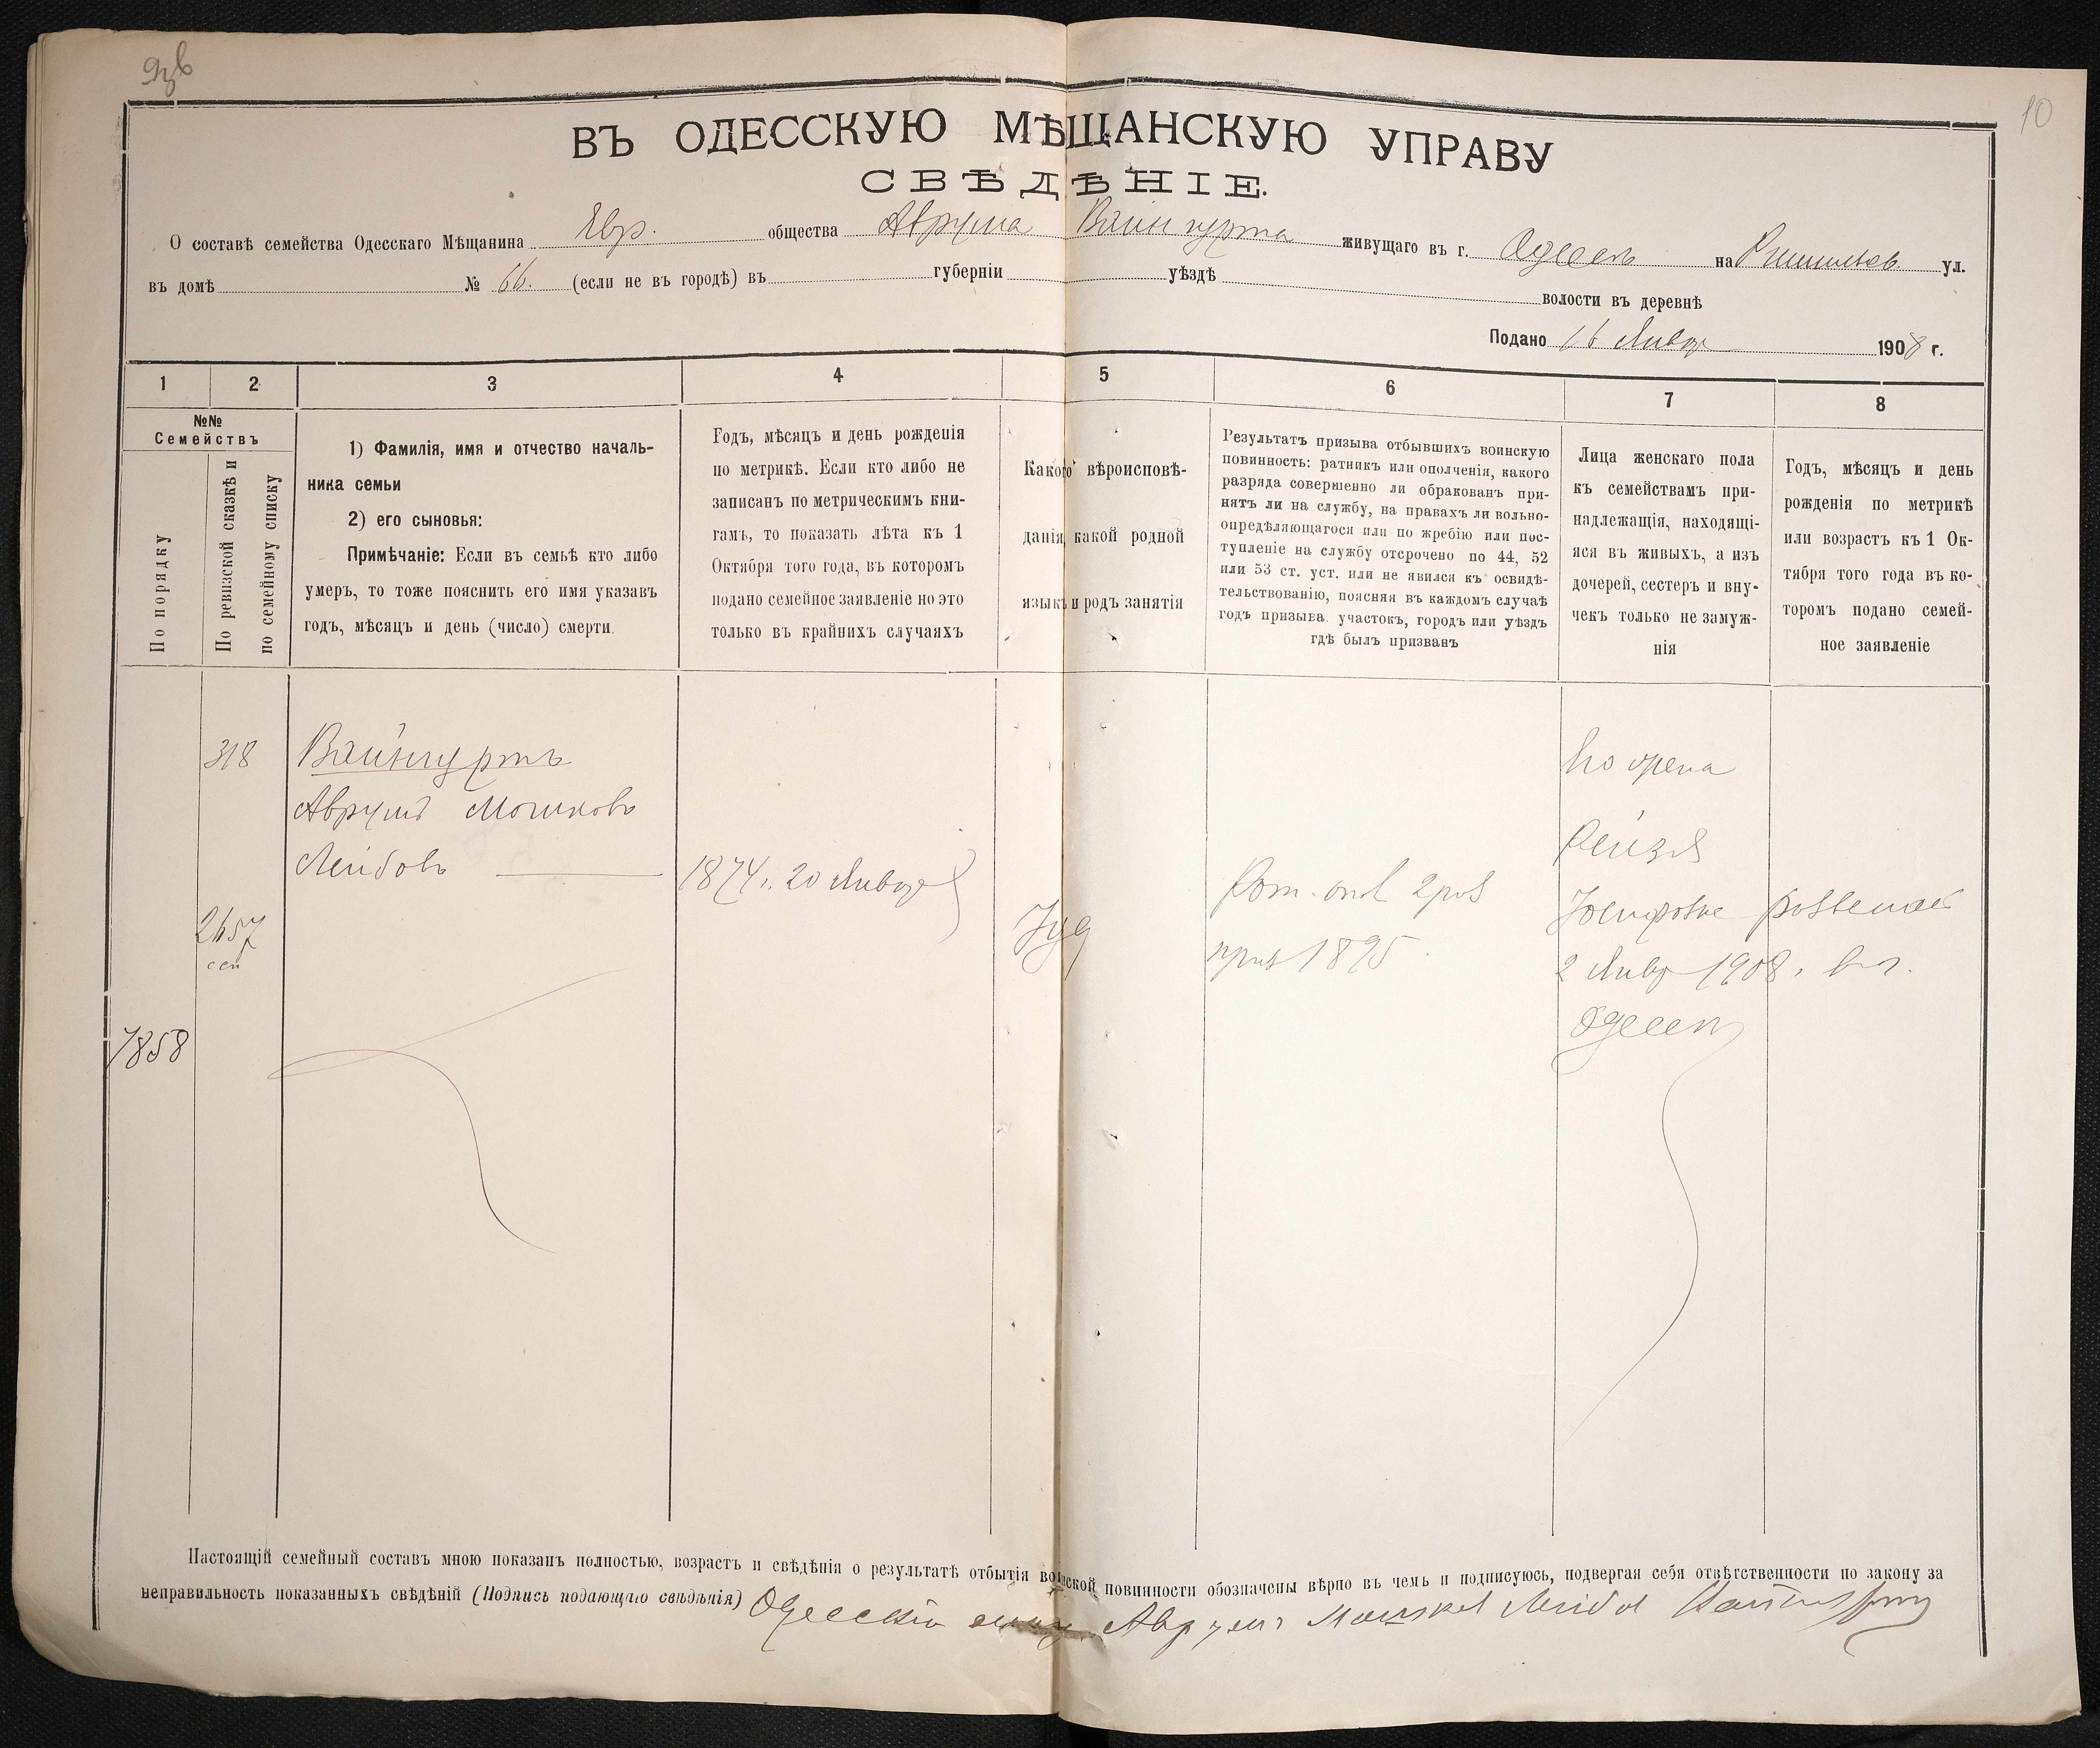 10
ВЪ ОДЕССКУЮ МѢЩАНСКУЮ УПРАВУ
СВѢДѢНІЕ.
О составѣ семейства Одесскаго Мѣщанина Евр. общества Аврума Вайнгурта живущаго въ г. Одессѣ на Ришельев. ул.
въ домѣ № 66. (если не въ городѣ) въ губерніи уѣздѣ волости въ деревнѣ
Подано 16 Январ 1908 г.
1 2 3 4 5 6 7 8
№№
Семействъ
По порядку
По ревизской сказкѣ и
по семейному списку
1) Фамилія, имя и отчество началь-
ника семьи
2) его сыновья:
Примѣчаніе: Если въ семьѣ кто либо
умеръ, то тоже пояснить его имя указавъ
годъ, мѣсяцъ и день (число) смерти.
Годъ, мѣсяцъ и день рожденія
по метрикѣ. Если кто либо не
записанъ по метрическимъ кни-
гамъ, то показать лѣта къ 1
Октября того года, въ которомъ
подано семейное заявленіе но это
только въ крайнихъ случаяхъ
Какого вѣроисповѣ-
данія, какой родной
языкъ и родъ занятія
Результатъ призыва отбывшихъ воинскую
повинность: ратникъ или ополченія, какого
разряда совершенно ли обракованъ при-
нятъ ли на службу, на правахъ ли вольно-
опредѣляющагося или по жребію или пос-
тупленіе на службу отсрочено по 44, 52
или 53 ст. уст. или не явился къ освидѣ-
тельствованію, поясняя въ каждомъ случаѣ
годъ призыва. участокъ, городъ или уѣздъ
гдѣ былъ призванъ
Лица женскаго пола
къ семействамъ при-
надлежащія, находящі-
яся въ живыхъ, а изъ
дочерей, сестеръ и вну-
чекъ только не замуж-
нія
Годъ, мѣсяцъ и день
рожденія по метрикѣ
или возрастъ къ 1 Ок-
тября того года въ ко-
торомъ подано семей-
ное заявленіе
318
Вайнгуртъ
Аврумъ Мошковъ
Лейбовъ
1874 г. 20 Январ
2657
сем
1858
Іуд
Рат. опол 2 раз
приз 1895
Его жена
Рейзя
2 Январ 1908 г. въ г.
Одессѣ
Настоящій семейный составъ мною показанъ полностью, возрастъ и свѣдѣнія о результатѣ отбытія воинской повинности обозначены вѣрно въ чемъ и подписуюсь, подвергая себя отвѣтственности по закону за
неправильность показанныхъ свѣдѣній (Подпись подающаго свѣдѣнія) Одесскій Аврумъ Мошков Лейбов Вайнгурт